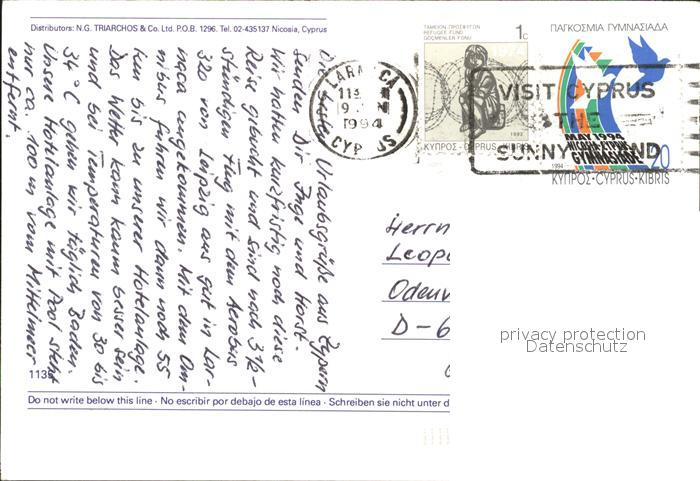 Distributors: N.G. TRIARCHOS & Co. Ltd. P.O.B. 1296. Tel. 02-435137 Nicosia, Cyprus
Die besten Urlaubsgrüße aus Zypern
senden Dir Inge und Horst.
Wir hatten kurzfristig noch diese
Reise gebucht und sind nach 3 1/2-
stündigem Flug mit dem Aerobus
320 von Leipzig aus gut in Lar-
naca angekommen. Mit dem Om-
nibus fuhren wir dann noch 55
km bis zu unserer Hotelanlage.
Das Wetter kann kaum besser sein
und bei Temperaturen von 30 bis
34 °C gehen wir täglich Baden.
Unsere Hotelanlage mit Pool steht
nur ca. 100 m vom Mittelmeer
entfernt.
1135
Do not write below this line · No escribir por debajo de esta línea · Schreiben sie nicht unter d
LARNACA
1994
CYPRUS
ΤΑΜΕΙΟΝ ΠΡΟΣΦΥΓΩΝ
REFUGEE FUND
GÖÇMENLER FONU
1c
1974
1993
ΚΥΠΡΟΣ-CYPRUS-KIBRIS
ΠΑΓΚΟΣΜΙΑ ΓΥΜΝΑΣΙΑΔΑ
VISIT CYPRUS
THE
SUNNY ISLAND
MAY 1994
NICOSIA-CYPRUS
GYMNASIADE
20
1994
ΚΥΠΡΟΣ-CYPRUS-KIBRIS
Herrn
Leop
Odenw
D-6
privacy protection
Datenschutz